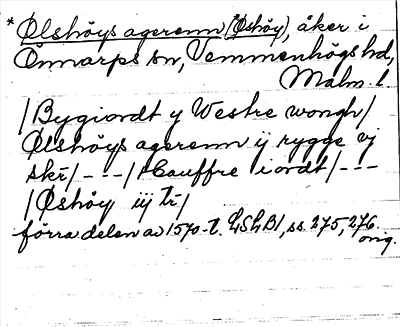 *Ølshöys agerenn (Øshöy), åker i
Önnarps sn, Vemmenhögs hd,
Malm. l.
/Bygiordt y Westre wongh/
Ølshöys agerenn ij rygge vj
skr̄/ - - - / Hauffre iordt/ - - -
/Øshöy iij tr̄/
förra delen av 1570-t. LSLB1, ss. 275, 276.
orig.